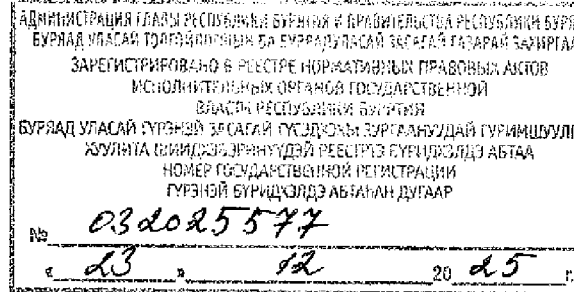 АДМИНИСТРАЦИЯ ГЛАВЫ РЕСПУБЛИКИ БУРЯТИЯ И ПРАВИТЕЛЬСТВА РЕСПУБЛИКИ БУРЯ
БУРЯАД УЛАСАЙ ТОЛГОЙЛОГШЫН БА БУРЯАД УЛАСАЙ ЗАСАГАЙ ГАЗАРАЙ ЗАХИРГАА
ЗАРЕГИСТРИРОВАНО В РЕЕСТРЕ НОРМАТИВНЫХ ПРАВОВЫХ АКТОВ
ИСПОЛНИТЕЛЬНЫХ ОРГАНОВ ГОСУДАРСТВЕННОЙ
ВЛАСТИ РЕСПУБЛИКИ БУРЯТИЯ
БУРЯАД УЛАСАЙ ГҮРЭНЭЙ ЗАСАГАЙ ГҮЙСЭДХЭХЫ ЗУРГААНУУДАЙ ГУРИМШУУЛ
РЕЕСТРТЭ БҮРИДХЭЛДЭ АБТАА
НОМЕР ГОСУДАРСТВЕННОЙ РЕГИСТРАЦИИ
ГҮРЭНЭЙ БҮРИДХЭЛДЭ АБТАҺАН ДУГААР
№ 032025577
« 23 » 12 20 25 г.